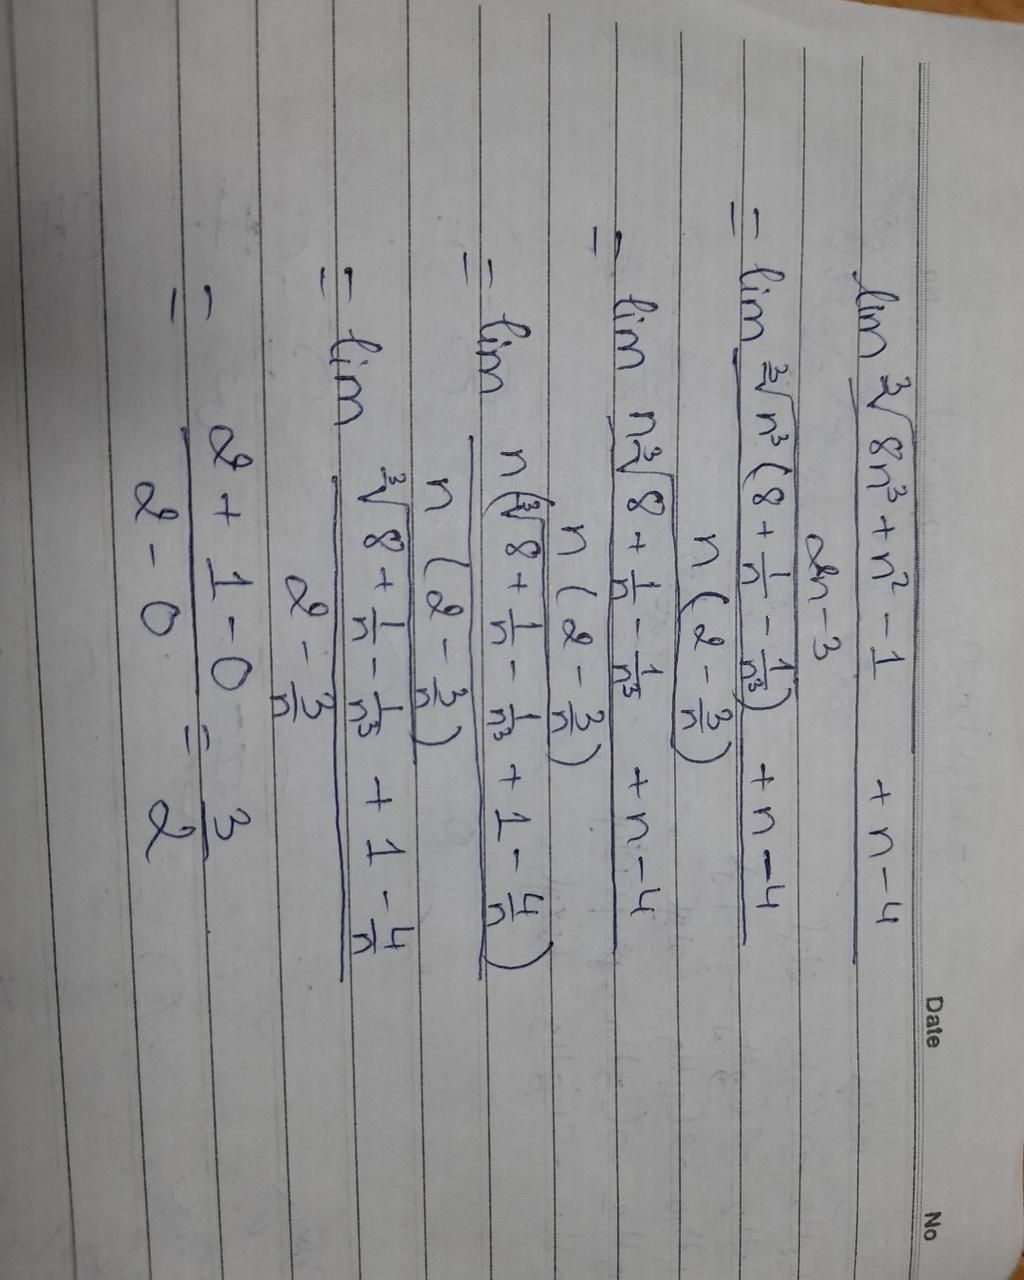 Date No
lim ∛(8n³ + n² - 1) + n - 4
2n - 3
= lim ∛(n³ (8 + 1/n - 1/n³)) + n - 4
n (2 - 3/n)
= lim n∛(8 + 1/n - 1/n³) + n - 4
n (2 - 3/n)
= lim n(∛(8 + 1/n - 1/n³) + 1 - 4/n)
n (2 - 3/n)
= lim ∛(8 + 1/n - 1/n³) + 1 - 4/n
2 - 3/n
= 2 + 1 - 0 = 3
2 - 0 2